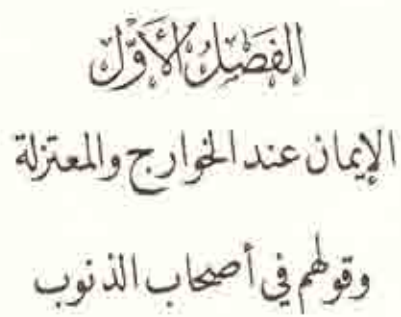 الفَصْلُ الأَوَّلُ
الإيمان عند الخوارج والمعتزلة
وقولهم في أصحاب الذنوب